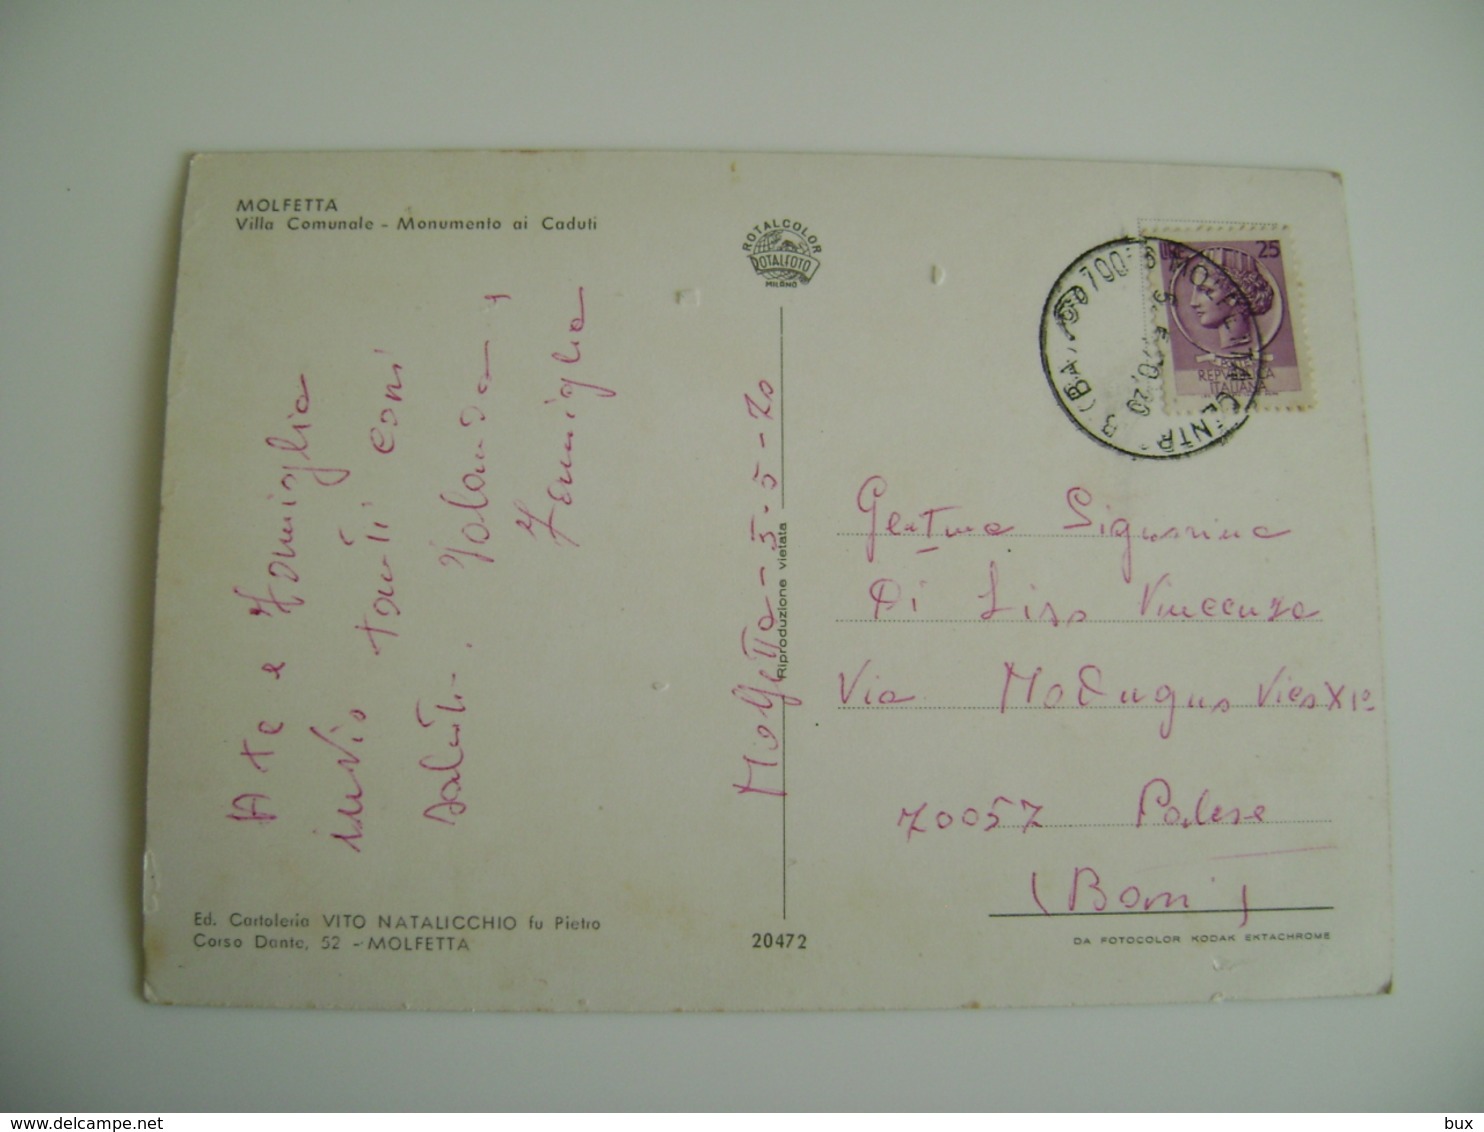 MOLFETTA
Villa Comunale - Monumento ai Caduti
A te e Famiglia
invio tanti cari
saluti. Iolanda e
Famiglia
Ed. Cartoleria VITO NATALICCHIO fu Pietro
Corso Dante, 52 - MOLFETTA
ROTALCOLOR
ROTALFOTO
MILANO
Molfetta - 5.5-70
Riproduzione vietata
20472
25
REPVBBLICA
ITALIANA
70056 MOLFETTA CENTR. B (BA)
5. 5. 70, 20
Gentma Signorina
Di Liso Vincenza
Via Modugno Vico XI°
70057 Palese
(Bari)
DA FOTOCOLOR KODAK EKTACHROME
delcampe.net
bux